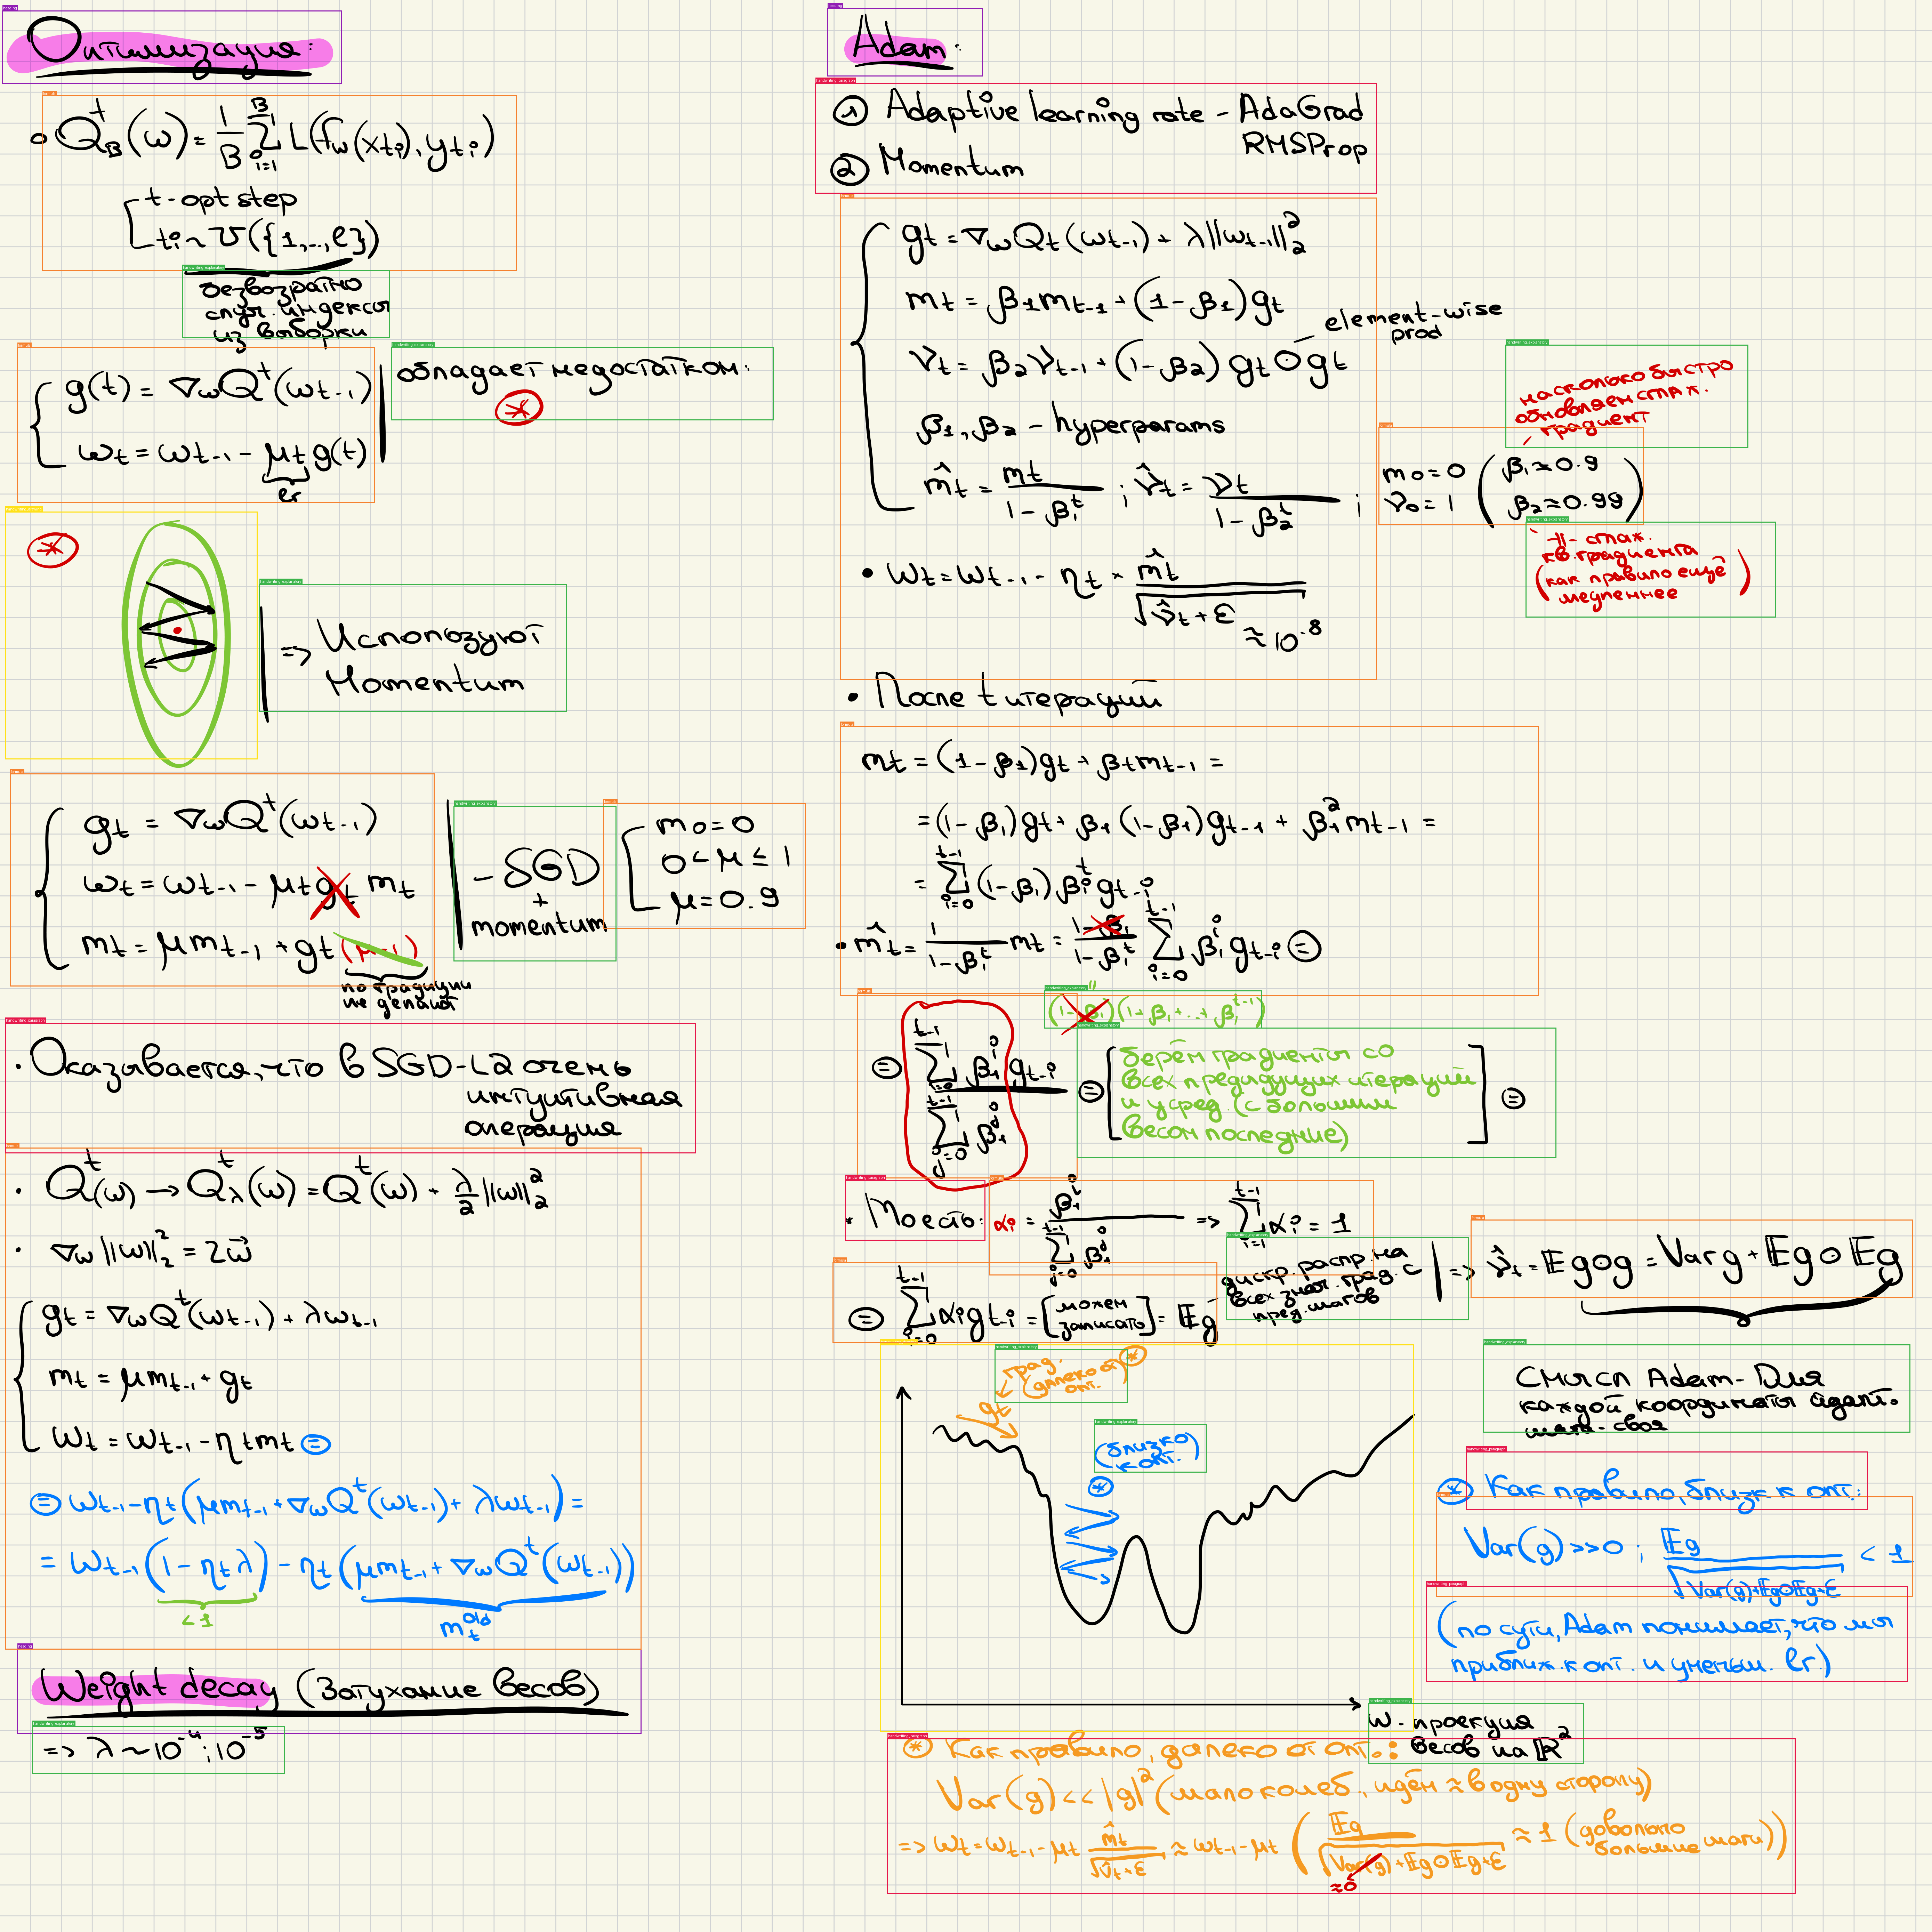 Оптимизация:
• Q_B^t(ω) = 1/B Σ_{i=1}^{B} L(f_ω(x_{ti}), y_{ti})
t - opt step
t_i ~ U({1,..,ℓ})
безвозратно
случ. индексы
из выборки
g(t) = ∇_ω Q^t(ω_{t-1})
ω_t = ω_{t-1} - μ_t g(t)
lr
обладает недостатком:
*
*
=> Используют
Momentum
g_t = ∇_ω Q^t(ω_{t-1})
ω_t = ω_{t-1} - μ_t g_t m_t
m_t = μ m_{t-1} + g_t (μ-1)
по традиции
не делают
- SGD
+
momentum
m_0 = 0
0 < μ ≤ 1
μ = 0.9
· Оказывается, что в SGD-L2 очень
интуитивная
операция
· Q^t(ω) → Q_λ^t(ω) = Q^t(ω) + λ/2 ||ω||_2^2
· ∇_ω ||ω||_2^2 = 2ω⃗
g_t = ∇_ω Q^t(ω_{t-1}) + λω_{t-1}
m_t = μ m_{t-1} + g_t
ω_t = ω_{t-1} - η_t m_t ⊜
⊜ ω_{t-1} - η_t(μ m_{t-1} + ∇_ω Q^t(ω_{t-1}) + λω_{t-1}) =
= ω_{t-1}(1 - η_t λ) - η_t(μ m_{t-1} + ∇_ω Q^t(ω_{t-1}))
< 1
m_t^{old}
Weight decay (Затухание весов)
=> λ ~ 10^{-4}; 10^{-5}
Adam.
① Adaptive learning rate - AdaGrad
RMSProp
② Momentum
g_t = ∇_ω Q_t(ω_{t-1}) + λ||ω_{t-1}||_2^2
m_t = β_1 m_{t-1} + (1 - β_1) g_t
element-wise
prod
ν_t = β_2 ν_{t-1} + (1 - β_2) g_t ⊙ g_t
β_1, β_2 - hyperparams
m̂_t = m_t / (1 - β_1^t) ; ν̂_t = ν_t / (1 - β_2^t) ;
насколько быстро
обновляем сглаж.
градиент
m_0 = 0
ν_0 = 1
(β_1 ≈ 0.9
β_2 ≈ 0.99)
-||- сглаж.
кв. градиента
(как правило ещё
медленнее)
• ω_t = ω_{t-1} - η_t × m̂_t / √(ν̂_t + ε)
≈ 10^{-8}
• После t итераций
m_t = (1 - β_1) g_t + β_t m_{t-1} =
= (1 - β_1) g_t + β_1 (1 - β_1) g_{t-1} + β_1^2 m_{t-1} =
= Σ_{i=0}^{t-1} (1 - β_1) β_i^t g_{t-i}
• m̂_t = 1/(1 - β_1^t) m_t = (1 - β_1)/(1 - β_1^t) Σ_{i=0}^{t-1} β_1^i g_{t-i} ⊜
"
(1 - β_1)(1 + β_1 + .. + β_1^{t-1})
⊜ Σ_{i=0}^{t-1} β_1^i g_{t-i} / Σ_{j=0}^{t-1} β_1^j ⊜
[берём градиенты со
всех предидущих итераций
и усред. (с большим
весом последние)] ⊜
· То есть: α_i = β_1^i / Σ_{j=0}^{t-1} β_1^j => Σ_{i=1}^{t-1} α_i = 1
⊜ Σ_{i=0}^{t-1} α_i g_{t-i} = [можем
записать] = 𝔼g
дискр. распр. на
всех знач. град. с
пред. шагов
=> ν̂_t = 𝔼g⊙g = Var g + 𝔼g ⊙ 𝔼g
Смысл Adam - Для
каждой координаты адапт.
шаг - своя
град.
(далеко от
опт.
*
g_t
(близко
к опт.)
*
ω - проекция
весов на ℝ^2
* Как правило, близк к опт.:
Var(g) >> 0 ; 𝔼g / √(Var(g) + 𝔼g⊙𝔼g + ε) < 1
(по сути, Adam понимает, что мы
приближ. к опт. и уменьш. lr.)
* Как правило, далеко от опт.:
Var(g) << |g|^2 (мало колеб., идём ≈ в одну сторону)
=> ω_t = ω_{t-1} - μ_t m̂_t / √(ν̂_t + ε) ≈ ω_{t-1} - μ_t (𝔼g / √(Var(g) + 𝔼g⊙𝔼g + ε) ≈ 1 (довольно
большие шаги))
≈0